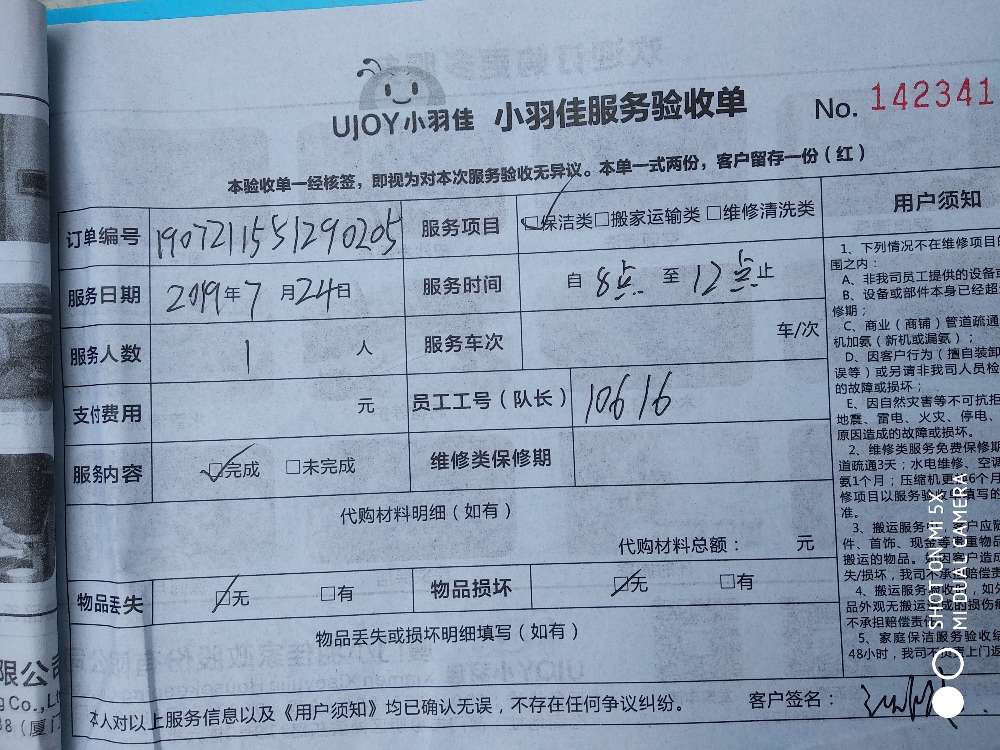 UJOY小羽佳 小羽佳服务验收单 No. 142341
本验收单一经核签，即视为对本次服务验收无异议。本单一式两份，客户留存一份（红）
订单编号 1907211551290205 服务项目 □保洁类□搬家运输类 □维修清洗类
服务日期 2019年7月24日 服务时间 自 8点 至 12点止
服务人数 1 人 服务车次 车/次
支付费用 元 员工工号（队长） 10616
服务内容 □完成 □未完成 维修类保修期
代购材料明细（如有）
代购材料总额： 元
物品丢失 □无 □有 物品损坏 □无 □有
物品丢失或损坏明细填写（如有）
本人对以上服务信息以及《用户须知》均已确认无误，不存在任何争议纠纷。 客户签名：
用户须知
1、下列情况不在维修项目
围之内：
A、非我司员工提供的设备
B、设备或部件本身已经超
修期；
C、商业（商铺）管道疏通
机加氨（新机或漏氨）；
D、因客户行为（擅自装卸
误等）或另请非我司人员检
的故障或损坏；
E、因自然灾害等不可抗拒
地震、雷电、火灾、停电、
原因造成的故障或损坏。
2、维修类服务免费保修期
道疏通3天；水电维修、空调
氨1个月；压缩机更 6个月
修项目以服务验收 填写的
准。
3、搬运服务 客户应
件、首饰、现金等 重物品
搬运的物品。如因客户造成
失/损坏，我司不承担赔偿责
4、搬运服务验收 ，如
品外观无搬运 成的损伤
不承担赔偿责
5、家庭保洁服务验收结
48小时，我司不负责上门返
限公司
g Co.,Lt
38（厦门
SHOT ON MI 5X
MI DUAL CAMERA